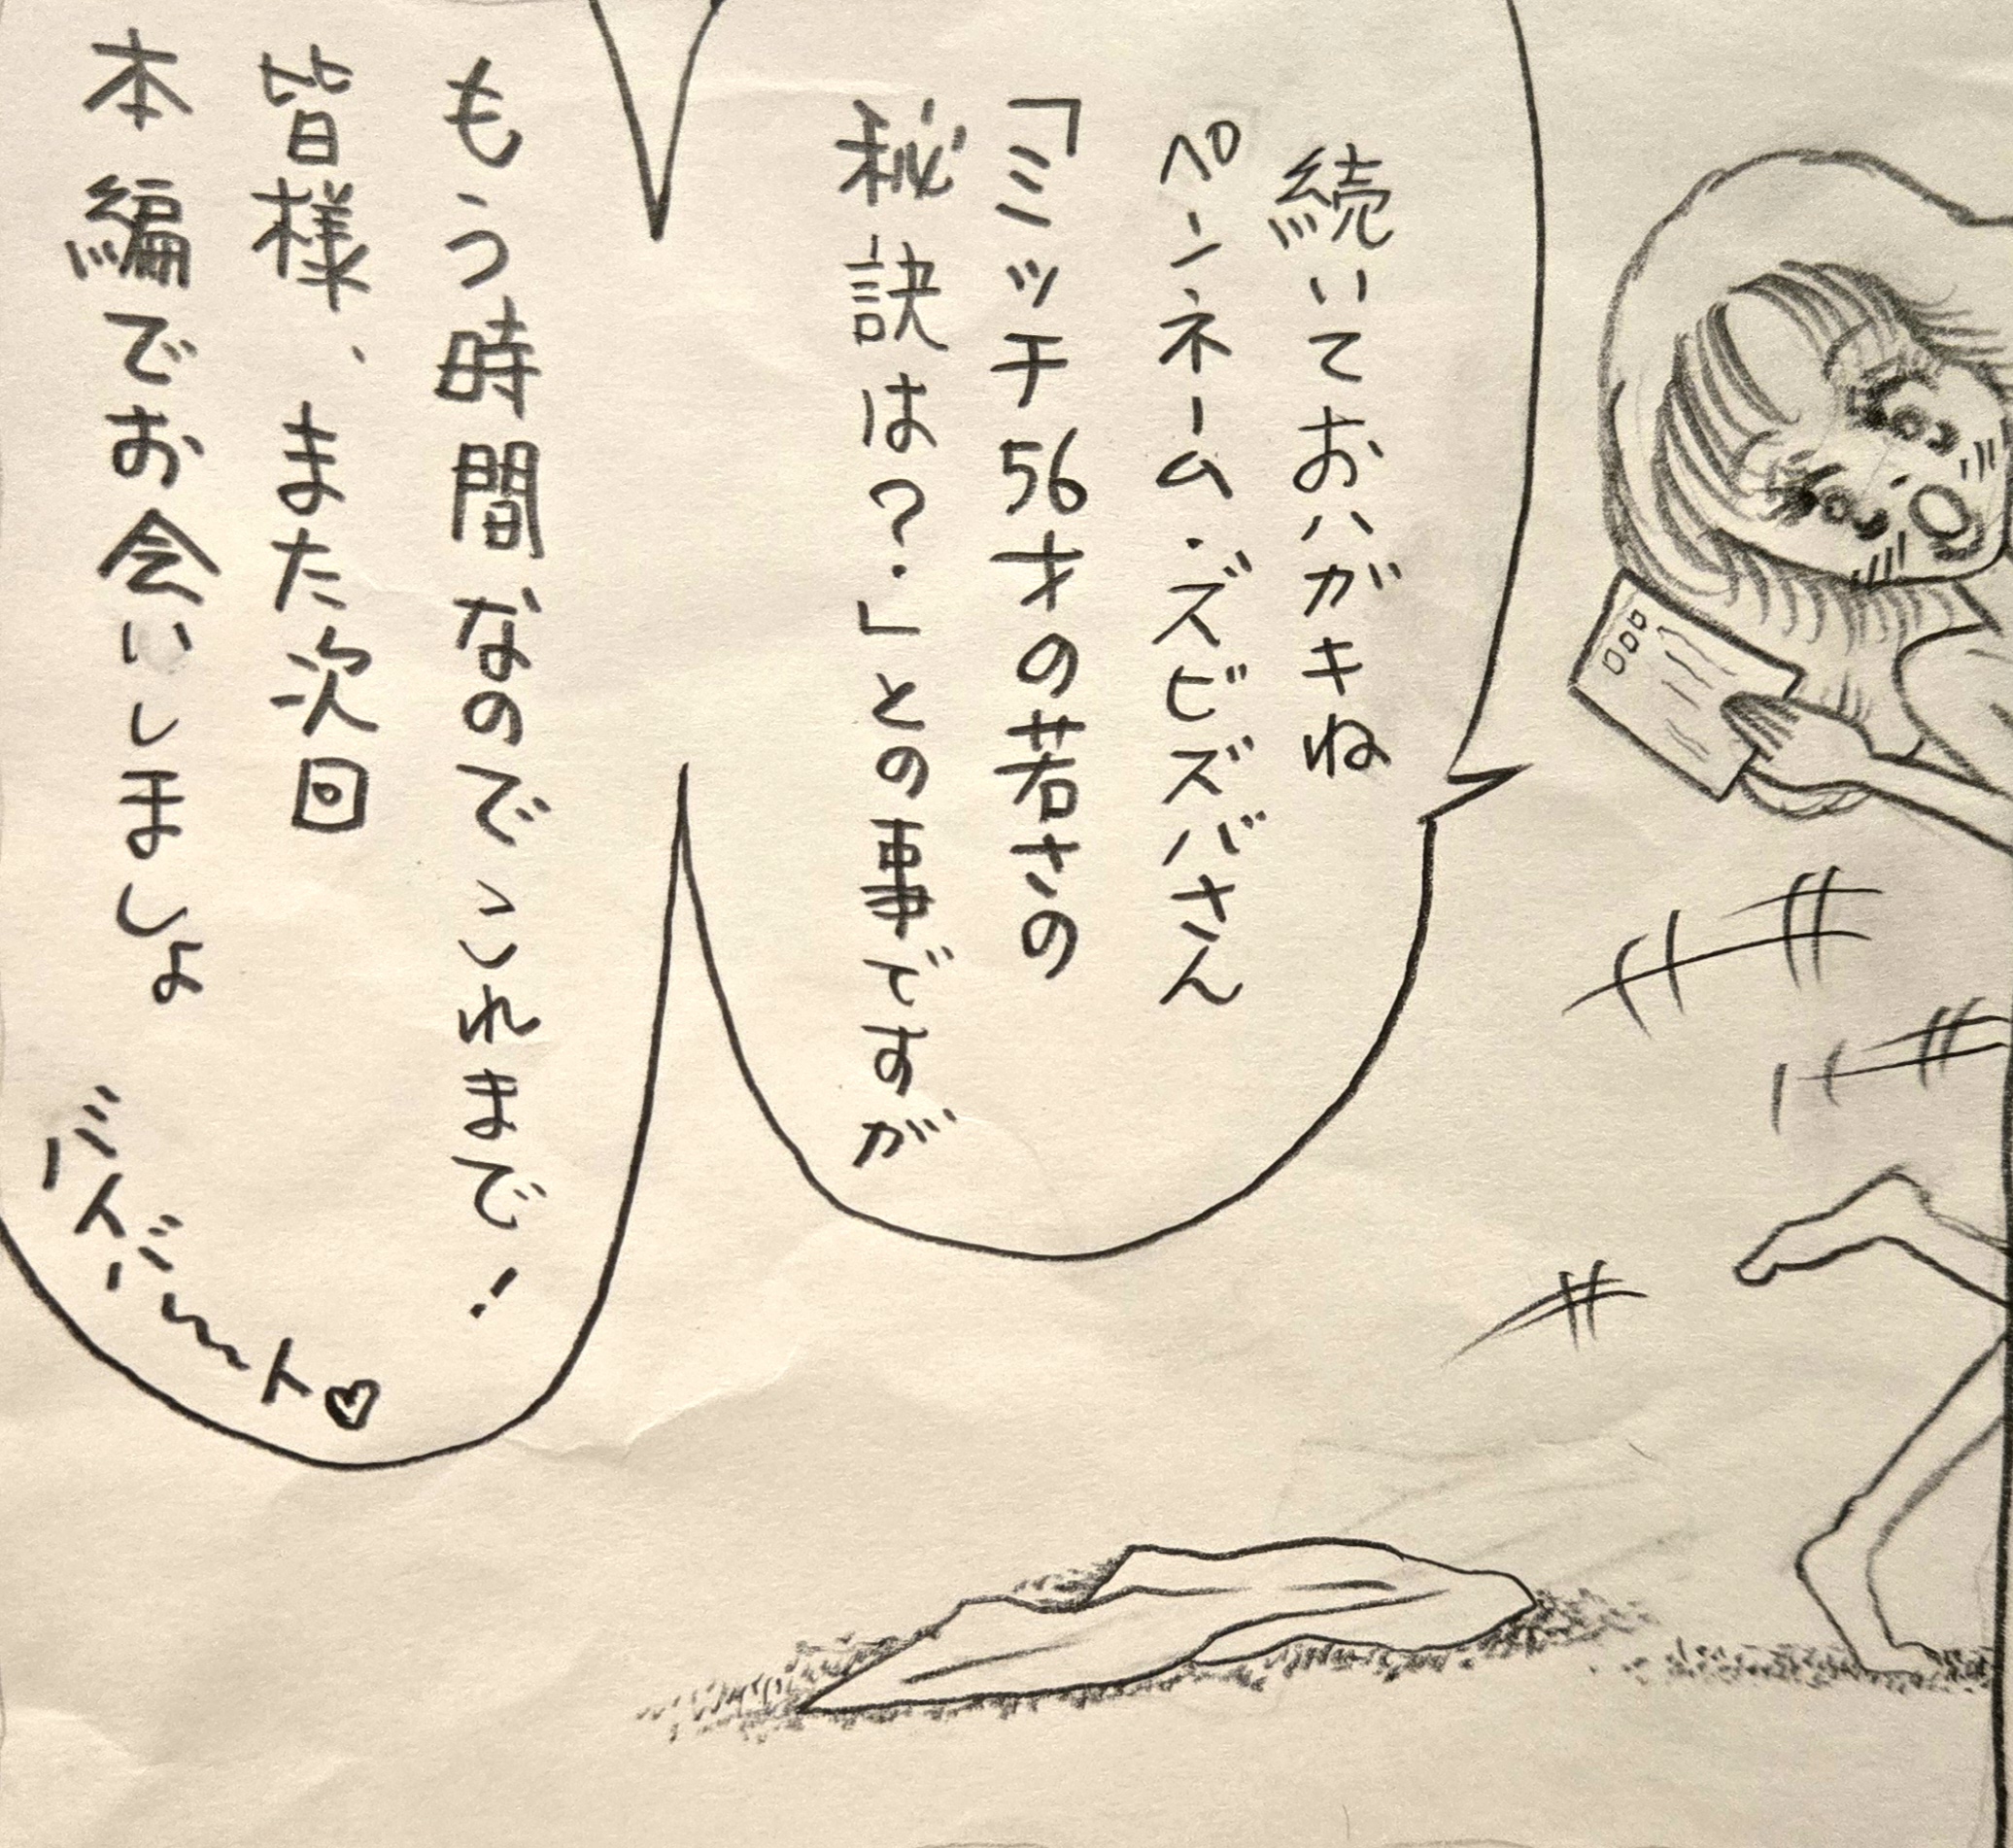 続いておハガキね
ペンネーム・ズビズバさん
「ミッチ56才の若さの
秘訣は?.」との事ですが
もう時間なのでこれまで!
皆様、また次回
本編でお会いしましょ
バイバ〜イ♡